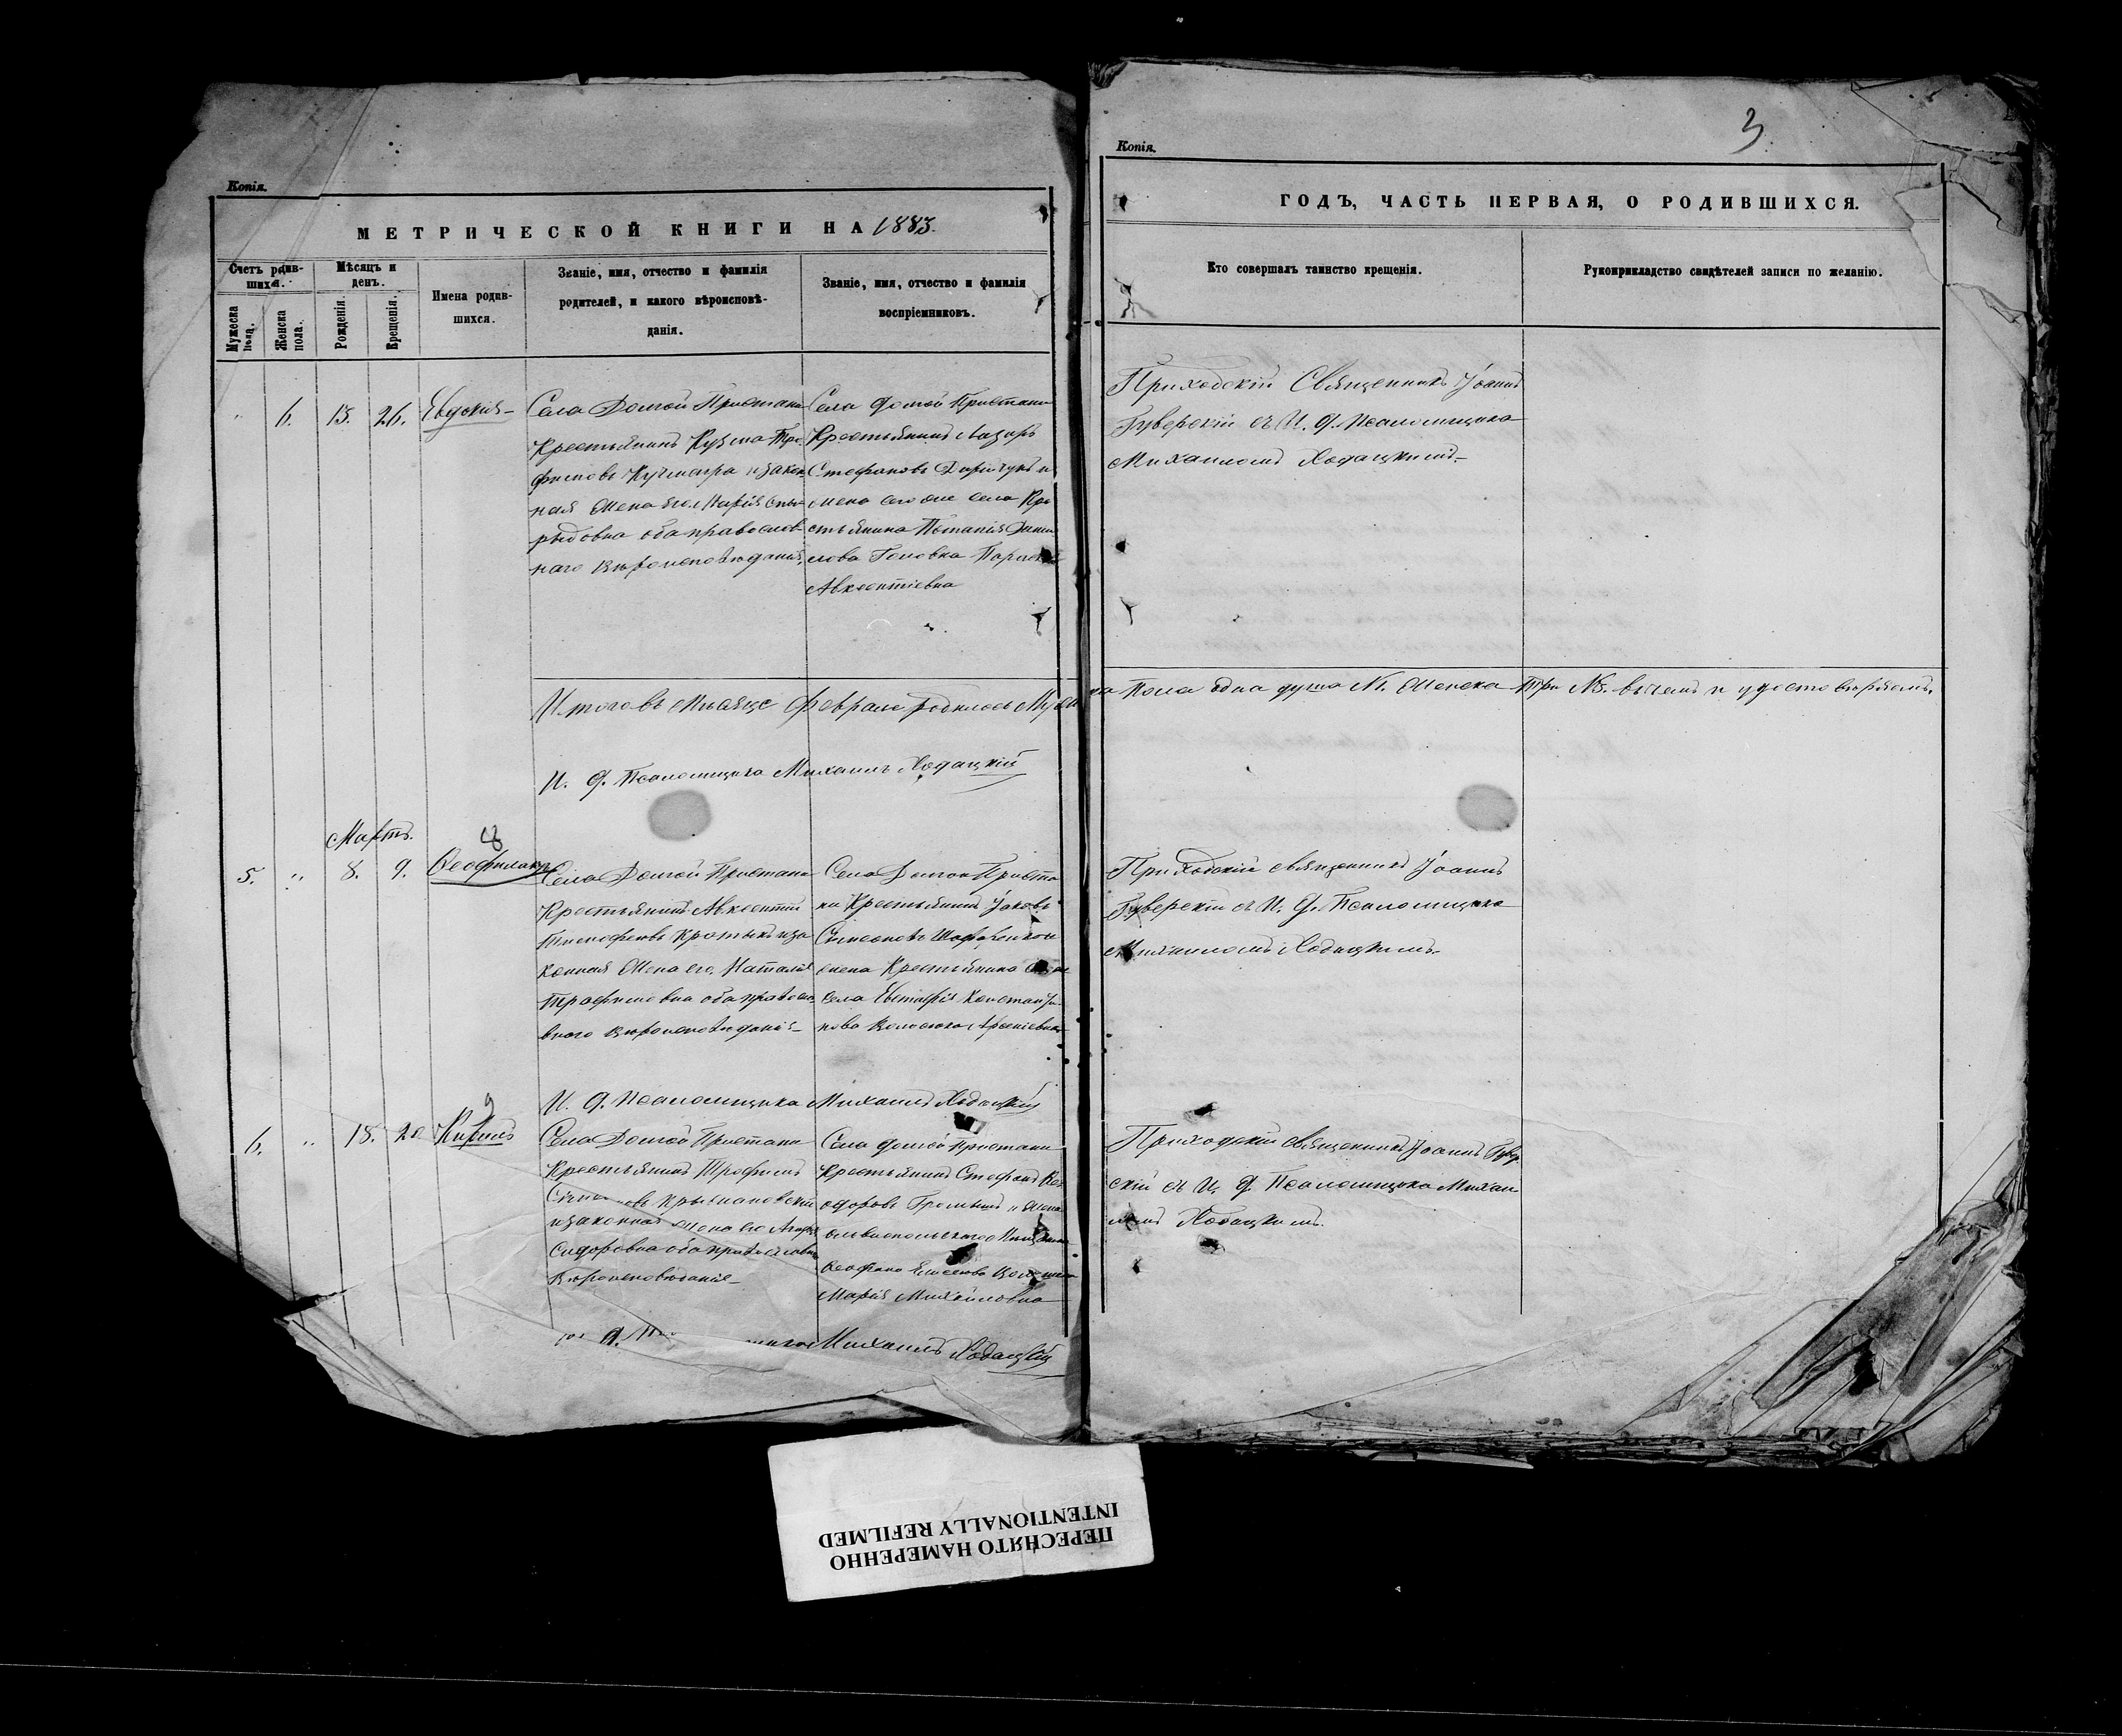 3.
Копія.
МЕТРИЧЕСКОЙ КНИГИ НА 1883.
Счетъ родив-
шихся.
Мѣсяцъ и
день.
Мужеска
пола.
Женска
пола.
Рожденія.
Крещенія.
Имена родив-
шихся.
Званіе, имя, отчество и фамилія
родителей, и какого вѣроисповѣ-
данія.
Званіе, имя, отчество и фамилія
воспріемниковъ.
" 6. 13. 26. Евдокія
Села Долгой Пристани
Крестьянинъ Кузма Тро-
фимовъ и закон
ная жена его Марія Спи-
рыдовна оба православ
наго вѣроисповѣданія.
Села Долгой Пристани
Крестьянинъ Лазарь
Стефановъ и
жена того же села Кре
стьянина
Головка Параскева
Авксентіевна
Итого въ мѣсяце Февралѣ родилось Муже
И. д. Псаломщика Михаилъ Ходацкій
Мартъ.
8
5. " 8. 9. Ѳеофилактъ
Села Долгой Пристани
Крестьянинъ Авксентій
Тимофеевъ и за
конная жена его Наталія
Трофимовна оба правосла
внаго вѣроисповѣданія
Села Долгой Приста
ни Крестьянинъ Іаковъ
Симеоновъ
жена Крестьянина
села Евстафія Константи
нова Арсеніевна
И. д. Псаломщика Михаилъ Ходацкій
9
6. " 18. 20 Кирилъ
Села Долгой Пристани
Крестьянинъ Трофимъ
и законная жена его
Сидоровна оба православн
вѣроисповѣданія
Села Долгой Пристани
Крестьянинъ Стефанъ Ѳе
одоровъ и жена
Марія Михайловна
Михаилъ Ходацкій
Копія.
ГОДЪ, ЧАСТЬ ПЕРВАЯ, О РОДИВШИХСЯ.
Кто совершалъ таинство крещенія.
Рукоприкладство свидѣтелей записи по желанію.
Приходскій Священникъ Іоаннъ
Гуверскій съ И. д. Псаломщика
Михаиломъ Ходацкимъ
ка пола одна душа №1. Женска три №3. въ чемъ и удостовѣряемъ.
Приходскій священникъ Іоаннъ
Гуверскій съ И. д. Псаломщика
Михаиломъ Ходацкимъ
Приходскій священникъ Іоаннъ Гувер
скій съ И. д. Псаломщика Михаи
ломъ Ходацкимъ.
ПЕРЕСНЯТО НАМЕРЕННО
INTENTIONALLY REFILMED